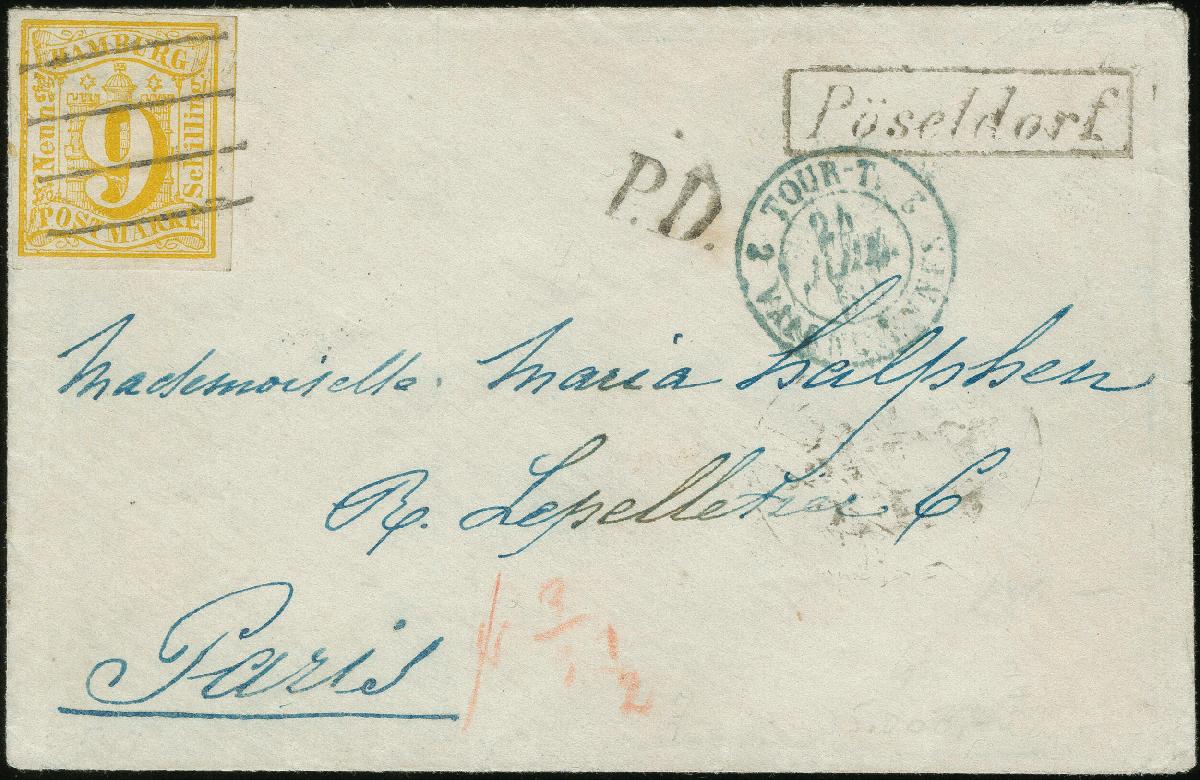 HAMBURG
Neun
9
Schilling
POSTMARKE
Pöseldorf
P.D.
2 TOUR-T. 2 VALENCIENNES
24
JUIL.
Mademoiselle Maria Halphen
R. Lepelletier 6
Paris